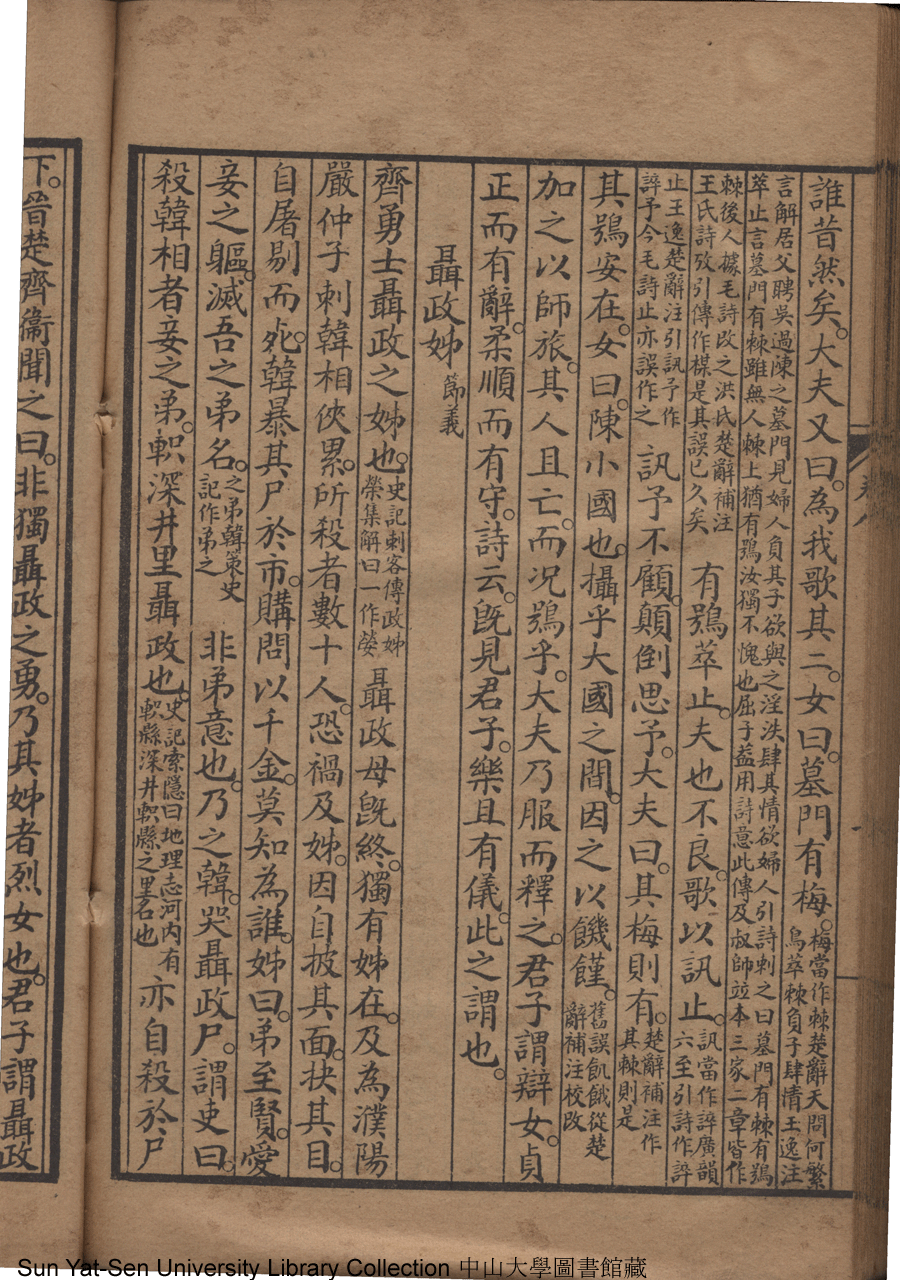 誰昔然矣。大夫又曰。為我歌其二。女曰。墓門有梅。梅當作棘楚辭天問何繁鳥萃棘負子肆情王逸注
言解居父聘吳過陳之墓門見婦人負其子欲與之淫泆肆其情欲婦人引詩刺之曰墓門有棘有鴞萃止言墓門有棘雖無人棘上猶有鴞汝獨不愧也屈子益用詩意此傳及叔師竝本三家二章皆作
棘後人據毛詩改之洪氏楚辭補注王氏詩攷引傳作楳是其誤已久矣 有鴞萃止。夫也不良。歌以訊止。訊當作誶廣韻六至引詩作誶
止王逸楚辭注引訊予作誶予今毛詩止亦誤作之 訊予不顧。顛倒思予。大夫曰。其梅則有。楚辭補注作其棘則是
其鴞安在。女曰。陳小國也。攝乎大國之間。因之以饑饉。舊誤飢餓從楚辭補注校改
加之以師旅。其人且亡。而況鴞乎。大夫乃服而釋之。君子謂辯女。貞
正而有辭。柔順而有守。詩云。既見君子。樂且有儀。此之謂也。
聶政姊 節義
齊勇士聶政之姊也。史記刺客傳政姊榮集解曰一作嫈 聶政母既終。獨有姊在。及為濮陽
嚴仲子刺韓相俠累。所殺者數十人。恐禍及姊。因自披其面。抉其目。
自屠剔而死。韓暴其尸於市。購問以千金。莫知為誰。姊曰。弟至賢。愛
妾之軀。滅吾之弟名。之弟韓策史記作弟之 非弟意也。乃之韓。哭聶政尸。謂吏曰。
殺韓相者妾之弟。軹深井里聶政也。史記索隱曰地理志河內有軹縣深井軹縣之里名也 亦自殺於尸
下。晉楚齊衞聞之曰。非獨聶政之勇。乃其姊者烈女也。君子謂聶政
Sun Yat-Sen University Library Collection 中山大學圖書館藏